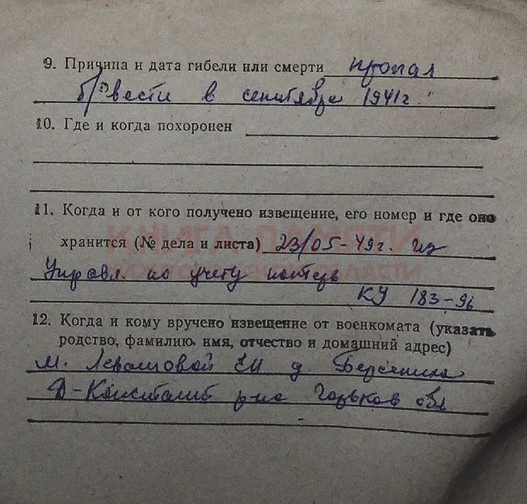 9. Причина и дата гибели или смерти пропал
б/вести в сентябре 1941г.
10. Где и когда похоронен
11. Когда и от кого получено извещение, его номер и где оно
хранится (№ дела и листа) 23/05-49г. из
Управл по учету потерь
КУ 183-96
12. Когда и кому вручено извещение от военкомата (указать
родство, фамилию, имя, отчество и домашний адрес)
м. ЕИ д
Д-Константин р-на Горьков обл
КНИГА ПАМЯТИ
ОБЛАСТИ